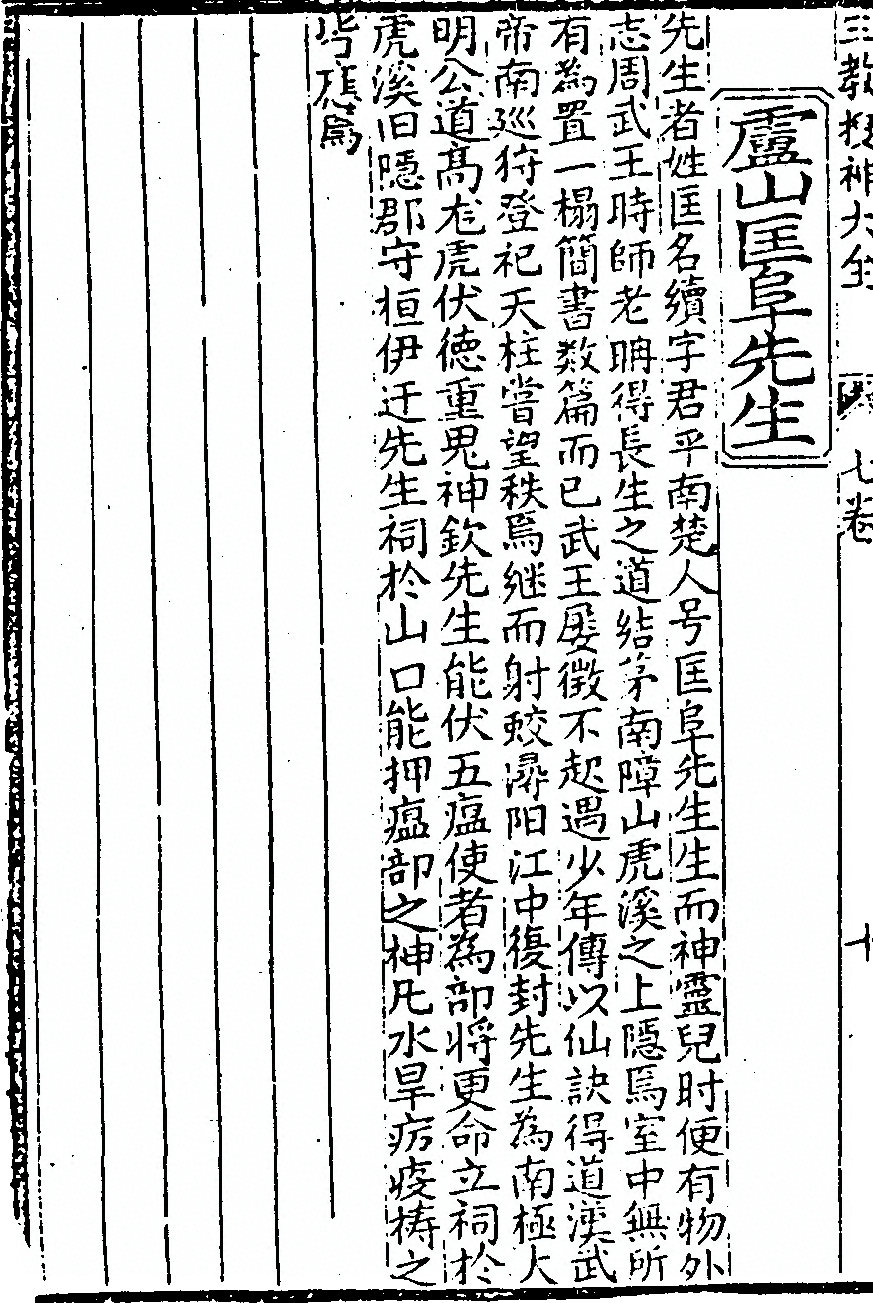 三教搜神大全 七卷 十
廬山匡阜先生
先生者姓匡名續字君平南楚人号匡阜先生生而神靈兒时便有物外
志周武王時師老聃得長生之道结茅南障山虎溪之上隱焉室中無所
有為置一榻簡書数篇而已武王屡徵不起遇少年傳以仙訣得道漢武
帝南巡狩登祀天柱嘗望秩焉継而射蛟潯阳江中復封先生為南極大
明公道髙龙虎伏德重鬼神欽先生能伏五瘟使者為部将更命立祠於
虎溪旧隱郡守桓伊迁先生祠於山口能押瘟部之神凡水旱疠疫梼之
皆應焉